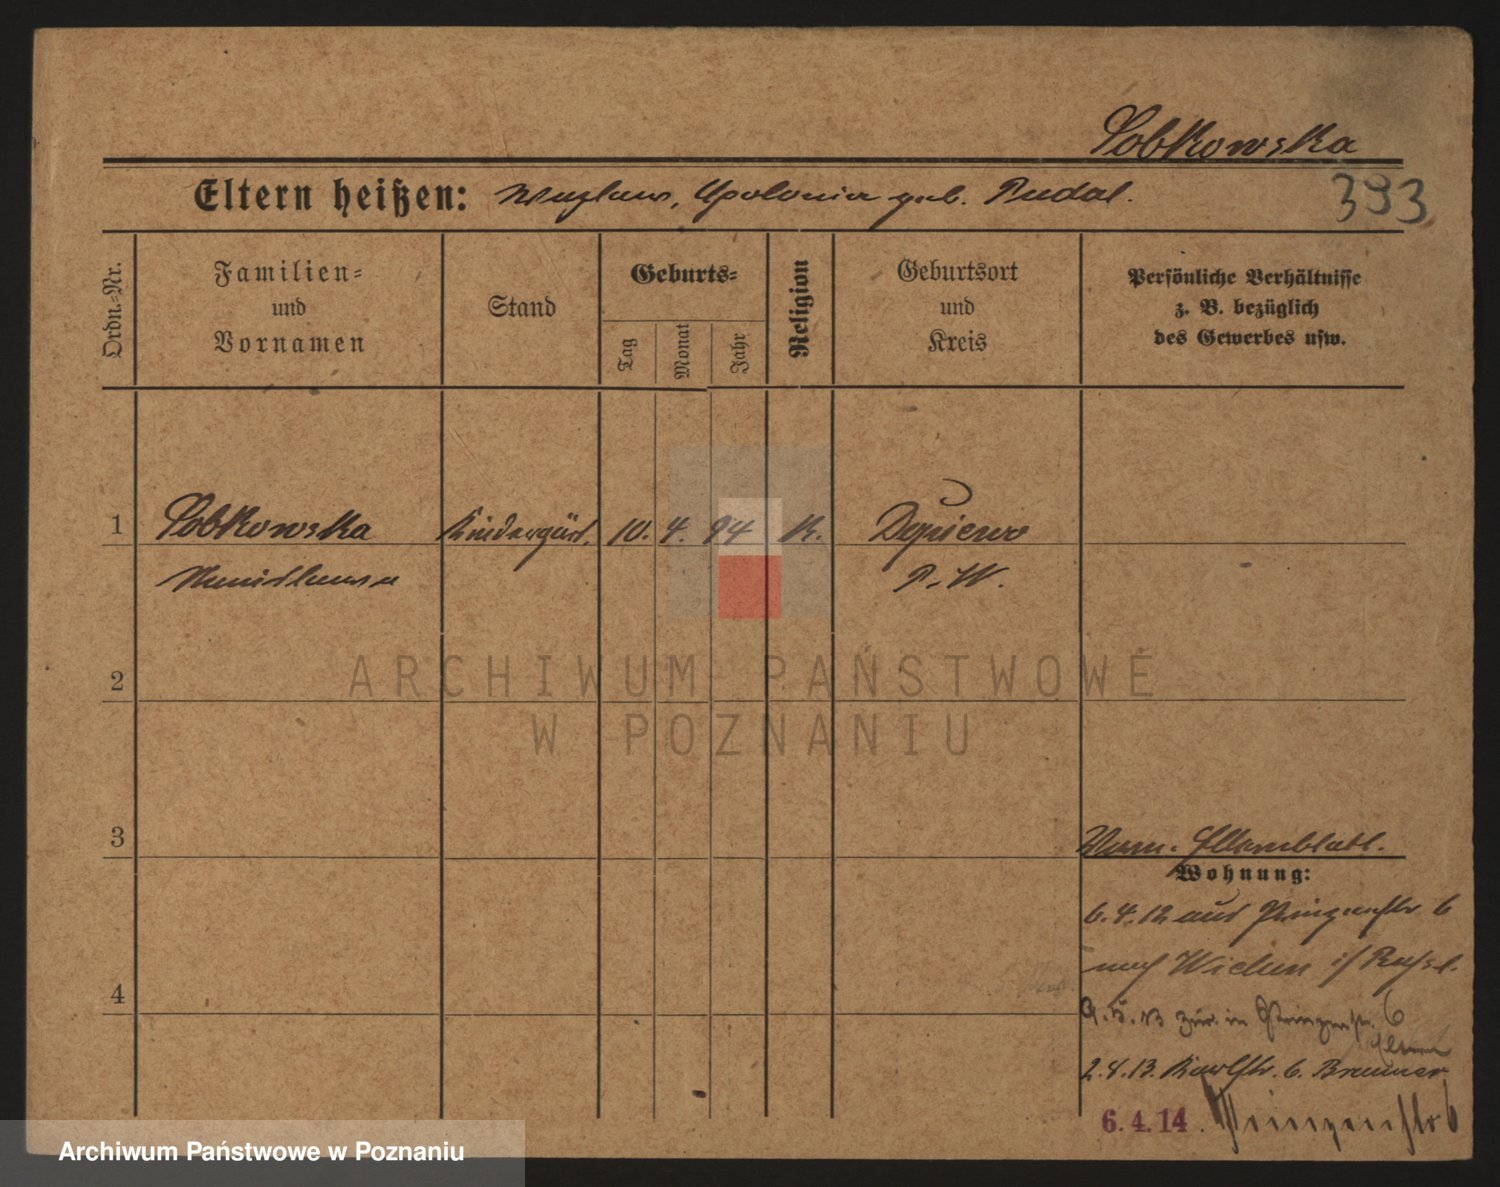 Sobkowska
Eltern heißen: Wazlaw, Apolonia geb. Rudal.
393
Ordn.-Nr.
Familien-
und
Vornamen
Stand
Geburts-
Tag
Monat
Jahr
Religion
Geburtsort
und
Kreis
Persönliche Verhältnisse
z. B. bezüglich
des Gewerbes usw.
1 Sobkowska Kindergärt. 10. 4. 94 K. Dopiewo
P. W.
2
ARCHIWUM PAŃSTWOWE
W POZNANIU
3
Vorm. Elternblatt.
Wohnung:
6.4.12 aus Prinzenstr 6
nach Wielun i/ Rußl.
4
9.5.13 zur. in Prinzenstr. 6
Eltern
2.8.13. Karlstr. 6. Brunner
6.4.14. Prinzenstr 6
Archiwum Państwowe w Poznaniu